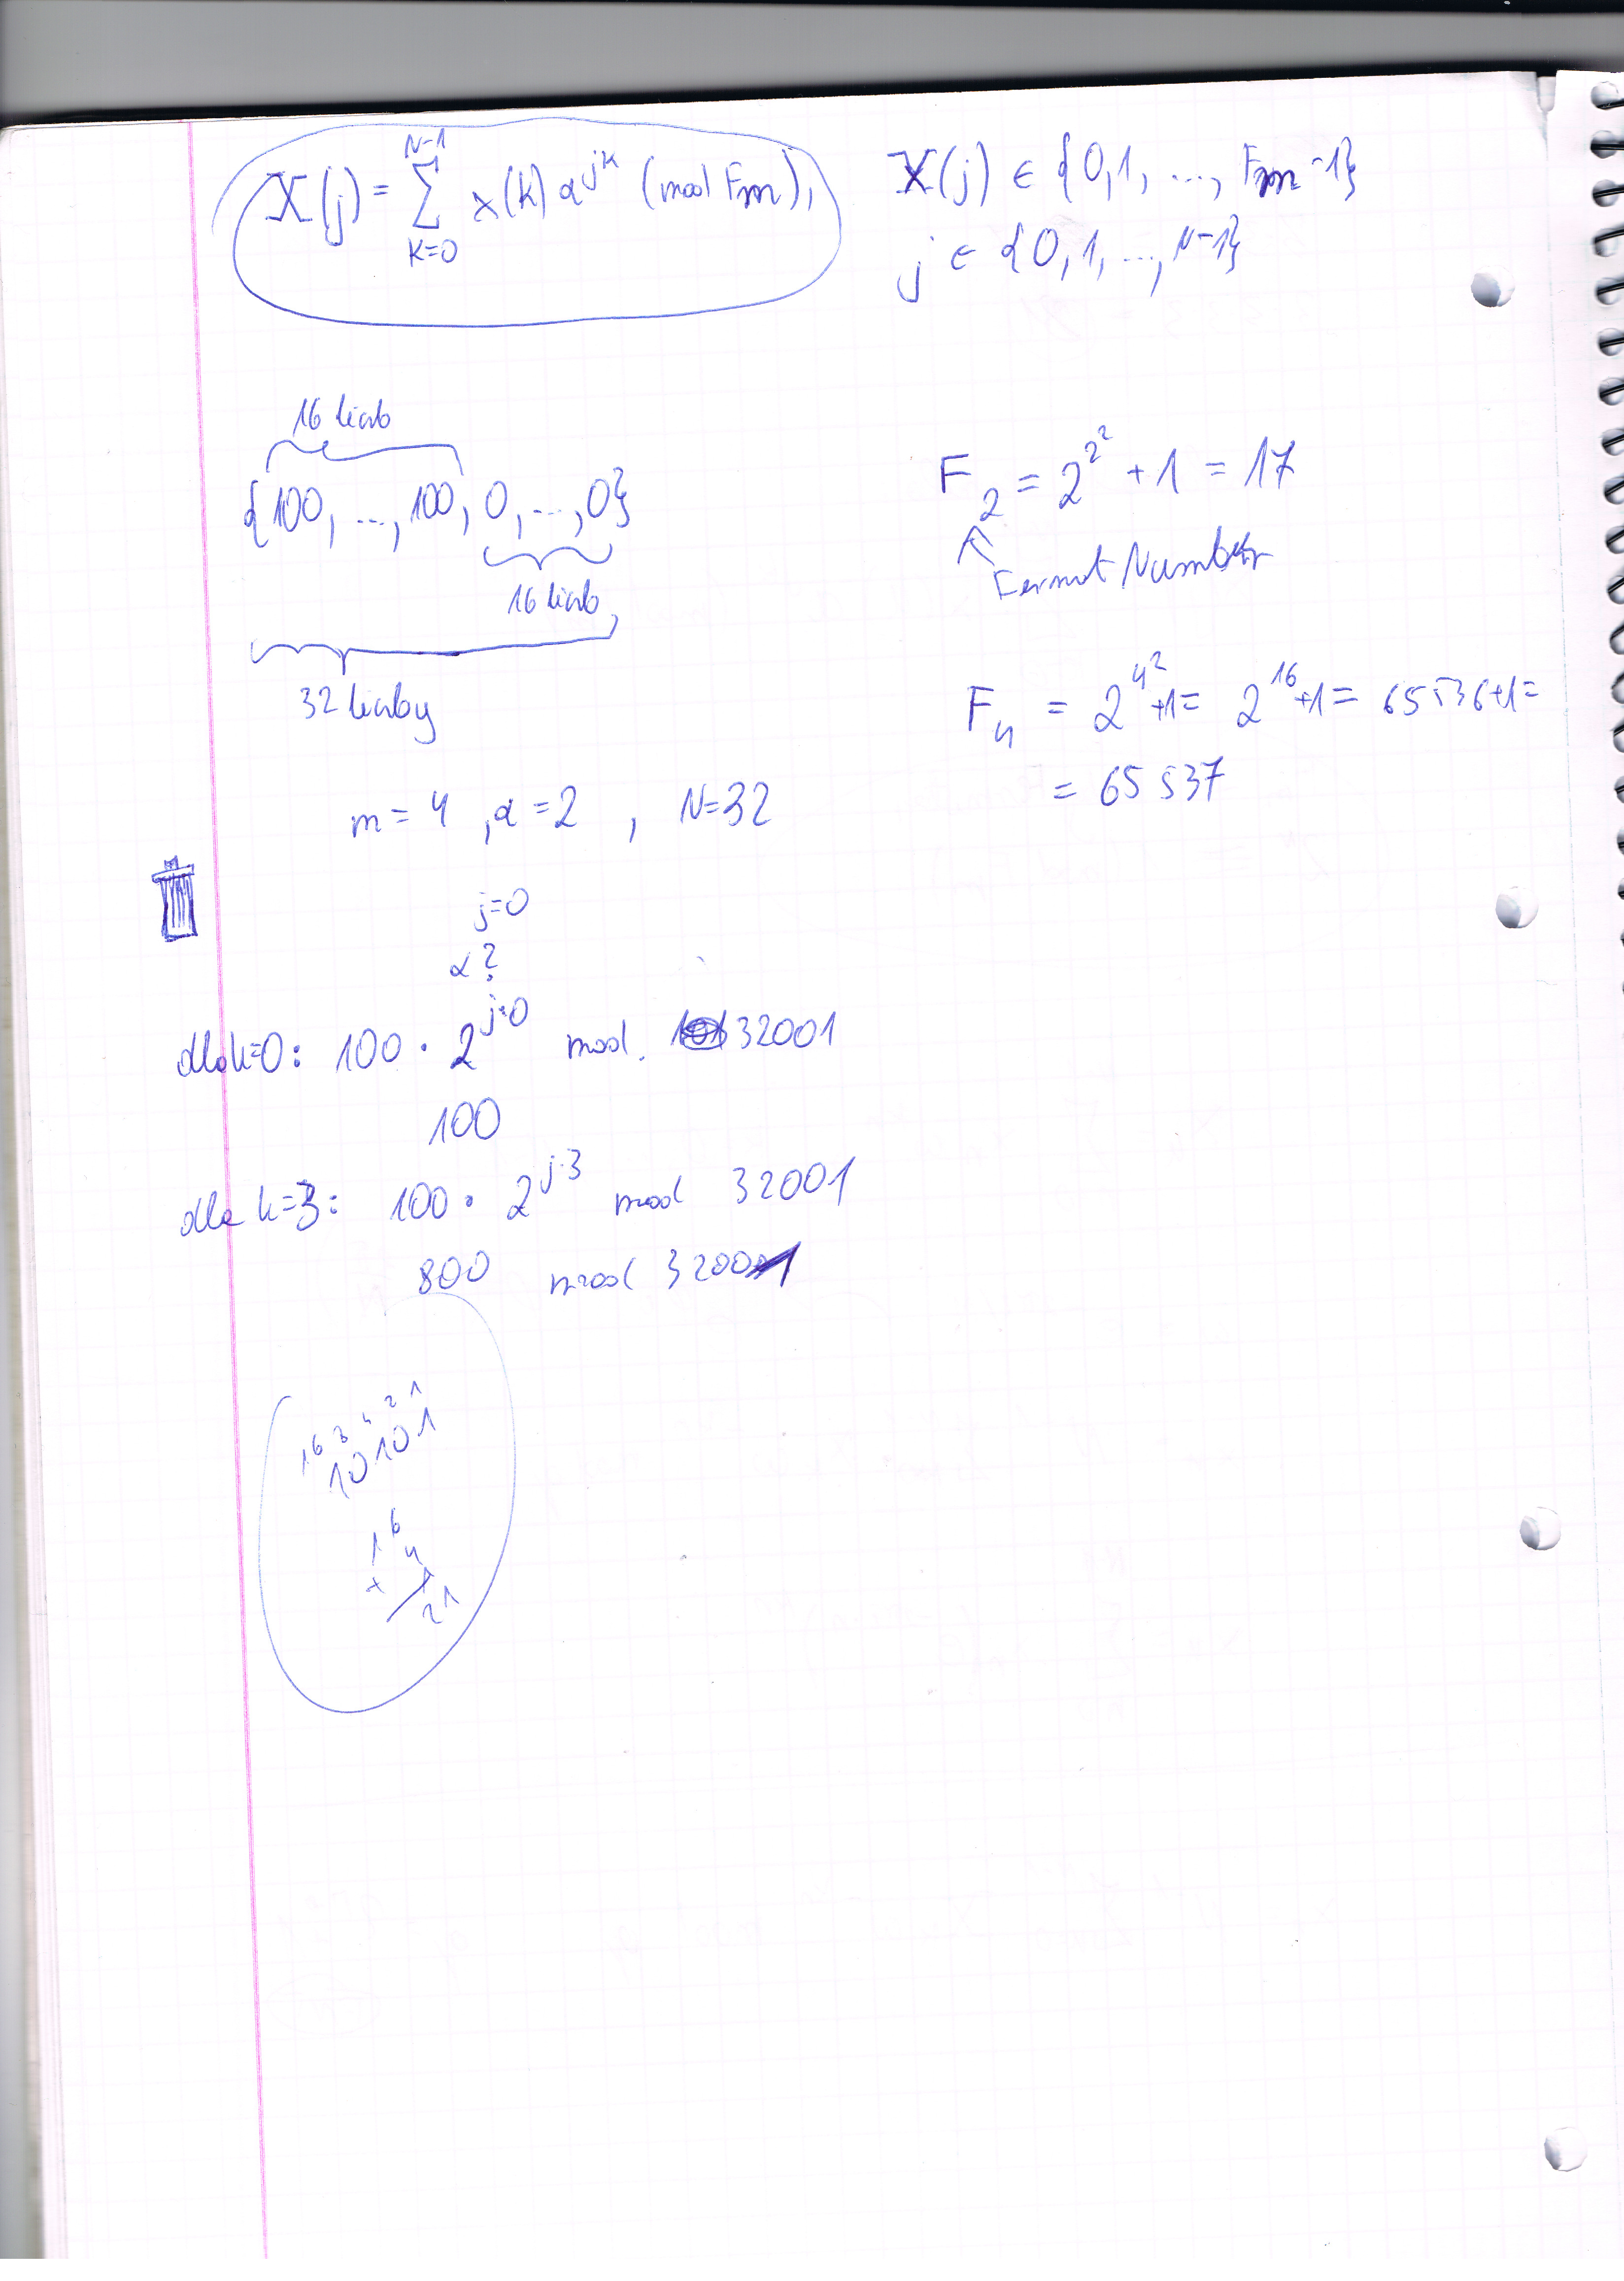 X(j) = Σ_{k=0}^{N-1} x(k) α^{jk} (mod Fm),
X(j) ∈ {0,1, ..., Fm-1}
j ∈ {0,1,...,N-1}
16 liczb
{100, ..., 100, 0, ..., 0}
16 liczb
32 liczby
F₂ = 2^{2^2} + 1 = 17
Fermat Number
F₄ = 2^{4^2}+1 = 2^{16}+1 = 65536+1=
= 65 537
m = 4 , α = 2 , N=32
j=0
α?
dla k=0: 100 · 2^{j·0} mod. 32001
100
dla k=3: 100 · 2^{j·3} mod 32001
800 mod 32001
16 8 4 2 1
10101
16
4
+ 1
21